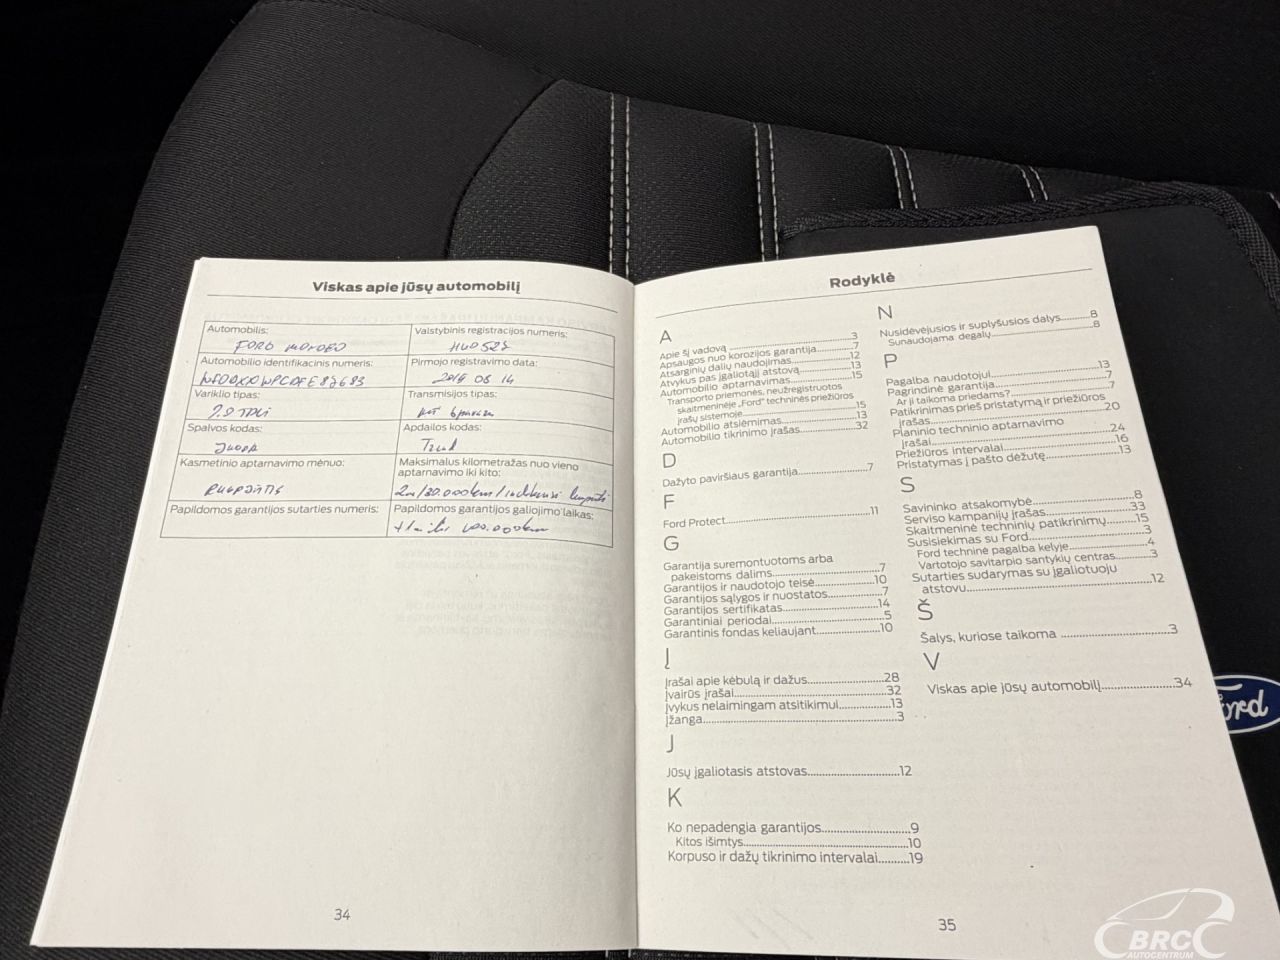 Viskas apie jūsų automobilį
Automobilis:
FORD MONDEO
Valstybinis registracijos numeris:
HUO 527
Automobilio identifikacinis numeris:
Pirmojo registravimo data:
08 14
Variklio tipas:
2.0 TDCi
Transmisijos tipas:
Spalvos kodas:
JUODA
Apdailos kodas:
Trend
Kasmetinio aptarnavimo mėnuo:
RUGPJŪTIS
Maksimalus kilometražas nuo vieno
aptarnavimo iki kito:
2m/30.000km/
Papildomos garantijos sutarties numeris:
Papildomos garantijos galiojimo laikas:
100.000km
34
Rodyklė
A
Apie šį vadovą ........3
Apsaugos nuo korozijos garantija........7
Atsarginių dalių naudojimas........12
Atvykus pas įgaliotąjį atstovą........13
Automobilio aptarnavimas........15
Transporto priemonės, neužregistruotos
skaitmeninėje „Ford“ techninės priežiūros
įrašų sistemoje........15
Automobilio atsiėmimas........13
Automobilio tikrinimo įrašas........32
D
Dažyto paviršiaus garantija........7
F
Ford Protect........11
G
Garantija suremontuotoms arba
pakeistoms dalims........7
Garantijos ir naudotojo teisė........10
Garantijos sąlygos ir nuostatos........7
Garantijos sertifikatas........14
Garantiniai periodai........5
Garantinis fondas keliaujant........10
Į
Įrašai apie kėbulą ir dažus........28
Įvairūs įrašai........32
Įvykus nelaimingam atsitikimui........13
Įžanga........3
J
Jūsų įgaliotasis atstovas........12
K
Ko nepadengia garantijos........9
Kitos išimtys........10
Korpuso ir dažų tikrinimo intervalai........19
N
Nusidėvėjusios ir suplyšusios dalys........8
Sunaudojama degalų........8
P
Pagalba naudotojui........13
Pagrindinė garantija........7
Ar ji taikoma priedams?........7
Patikrinimas prieš pristatymą ir priežiūros
įrašas........20
Planinio techninio aptarnavimo
įrašai........24
Priežiūros intervalai........16
Pristatymas į pašto dėžutę........13
S
Savininko atsakomybė........8
Serviso kampanijų įrašas........33
Skaitmeninė techninių patikrinimų........15
Susisiekimas su Ford........3
Ford techninė pagalba kelyje........4
Vartotojo savitarpio santykių centras........3
Sutarties sudarymas su įgaliotuoju
atstovu........12
Š
Šalys, kuriose taikoma ........3
V
Viskas apie jūsų automobilį........34
35
Ford
BRC
AUTOCENTRUM